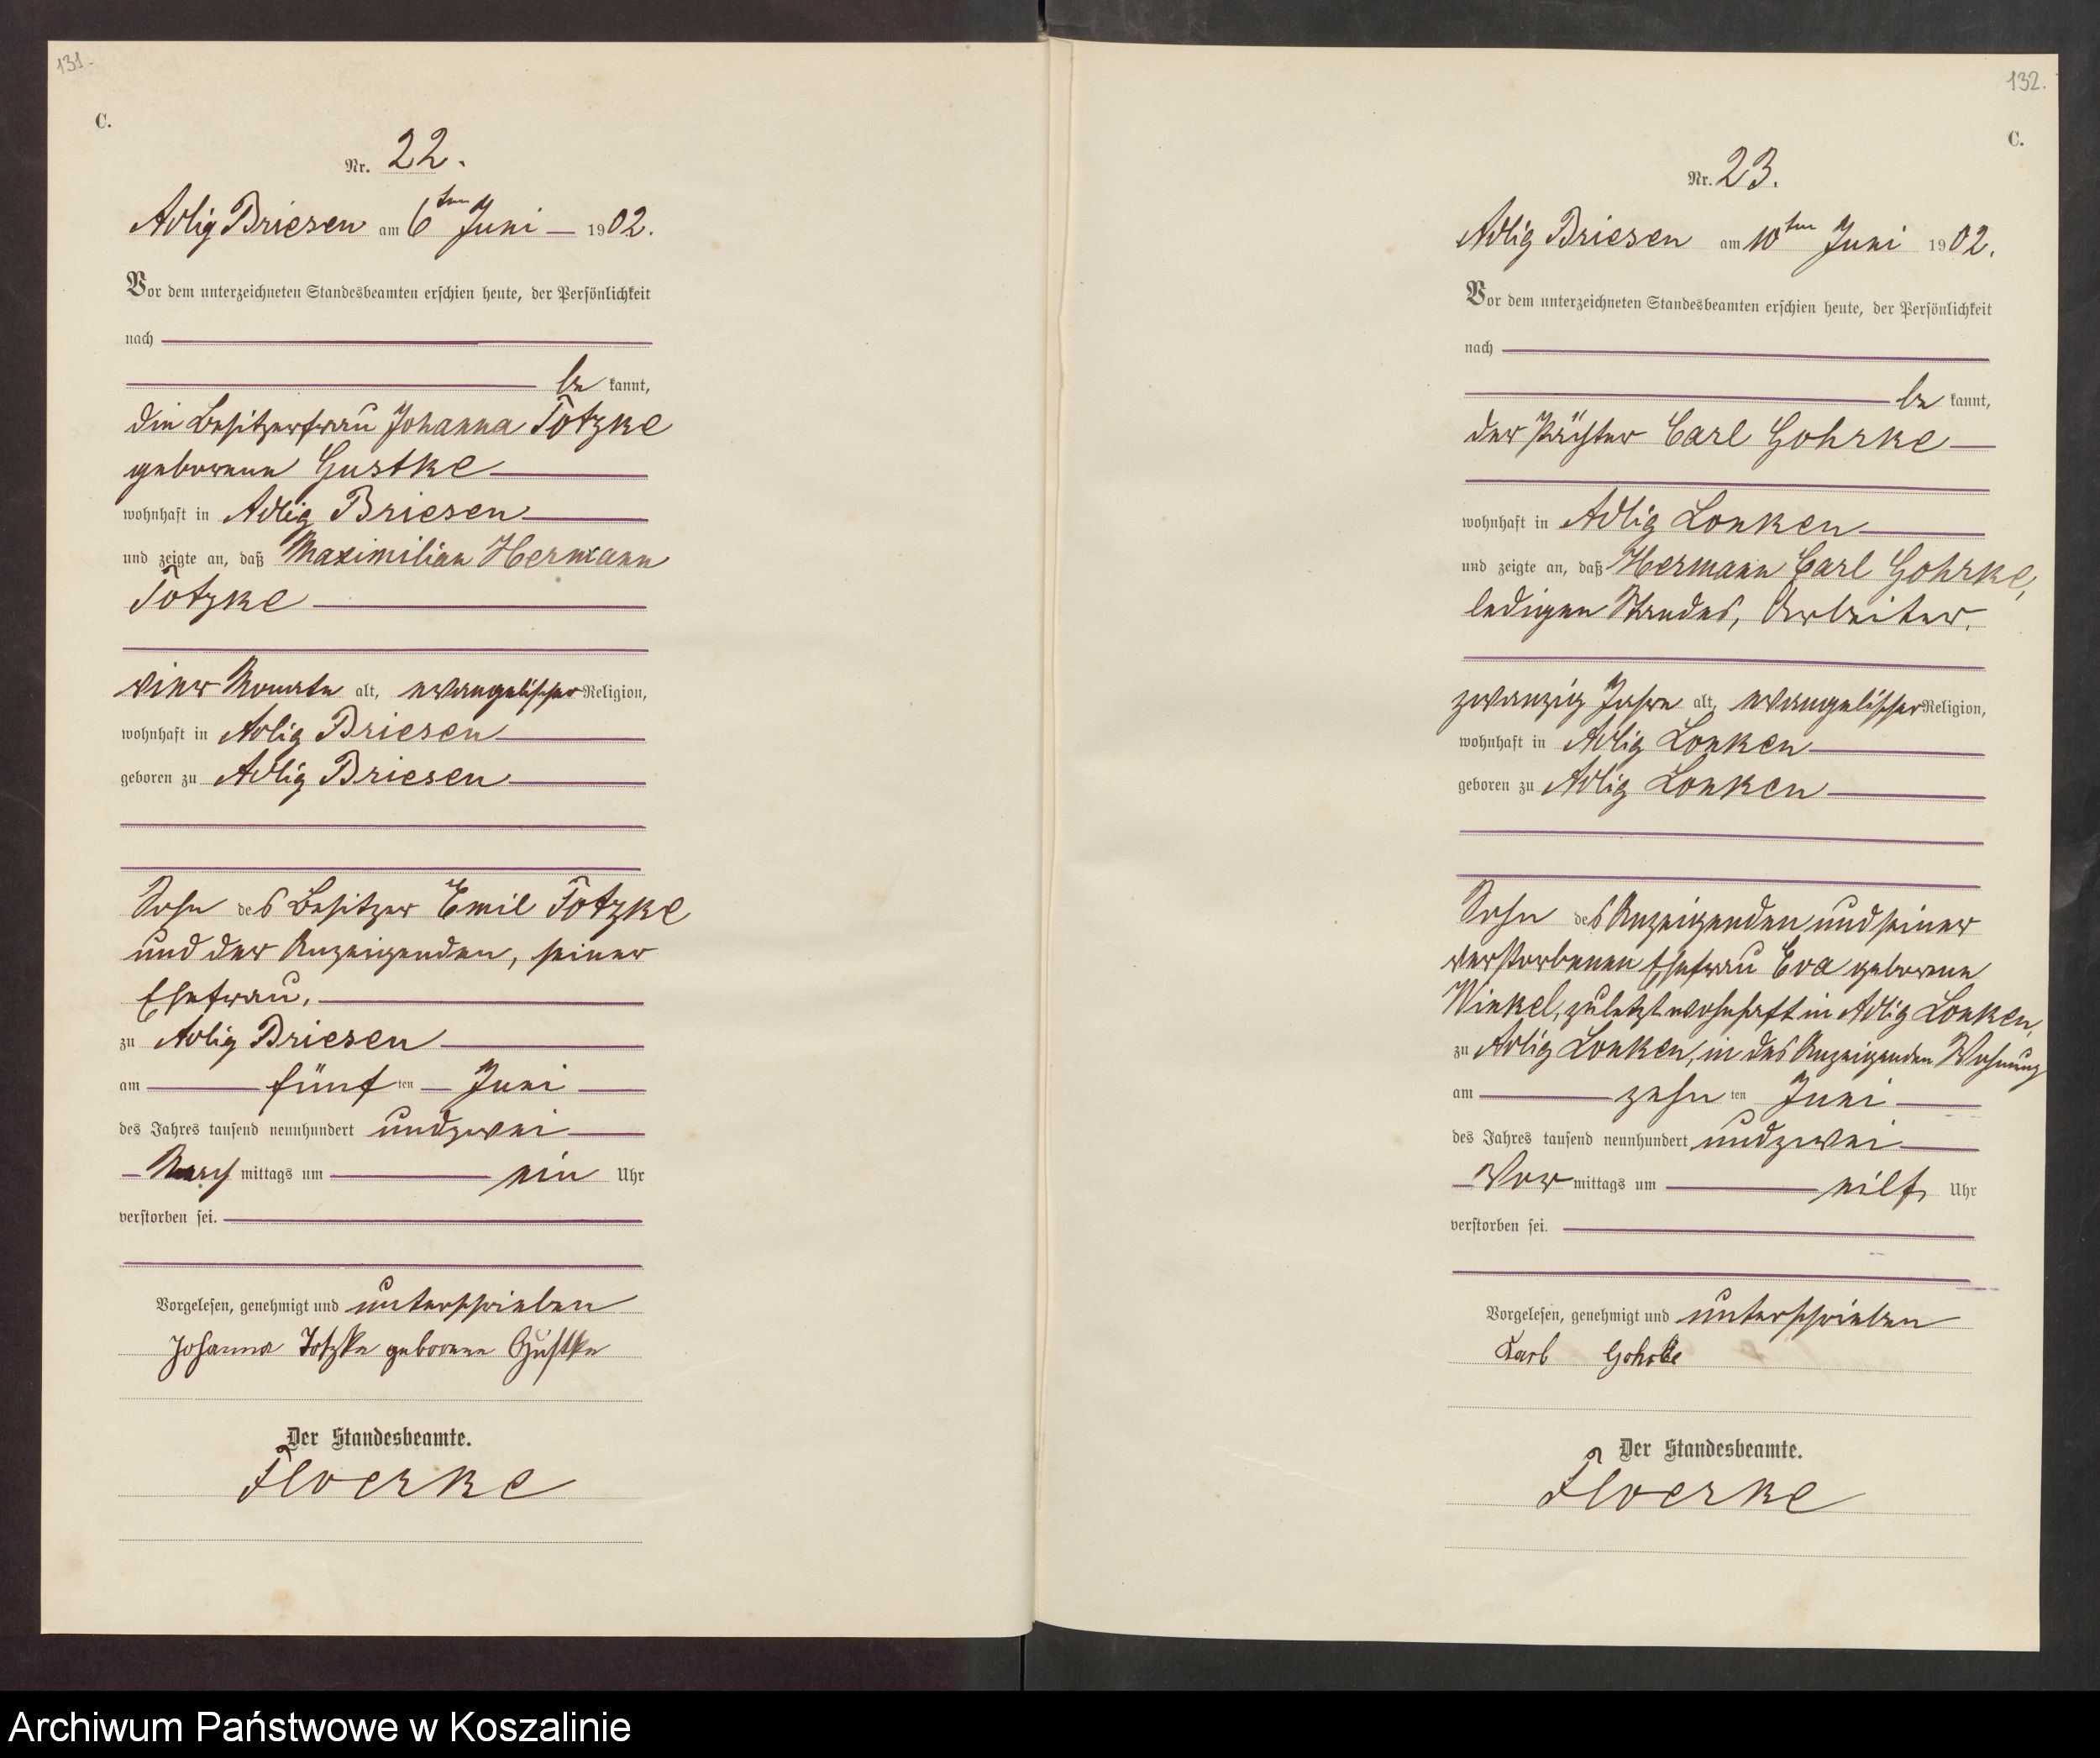 131.
C.
Nr. 22.
Adlig Briesen am 6ten Juni 1902.
Vor dem unterzeichneten Standesbeamten erschien heute, der Persönlichkeit
nach
be kannt,
die Besitzerfrau Johanna Totzke
geborene Gustke
wohnhaft in Adlig Briesen
und zeigte an, daß Maximilian Hermann
Totzke
vier Monate alt, evangelischer Religion,
wohnhaft in Adlig Briesen
geboren zu Adlig Briesen
Sohn des Besitzer Emil Totzke
und der Anzeigenden, seiner
Ehefrau,
zu Adlig Briesen
am fünf ten Juni
des Jahres tausend neunhundert undzwei
Nach mittags um ein Uhr
verstorben sei.
Vorgelesen, genehmigt und unterschrieben
Johanna Totzke geborene Gustke
Der Standesbeamte.
Floerke
132.
C.
Nr. 23.
Adlig Briesen am 10ten Juni 1902.
Vor dem unterzeichneten Standesbeamten erschien heute, der Persönlichkeit
nach
be kannt,
der Pächter Carl Gohrke
wohnhaft in Adlig Lonken
und zeigte an, daß Hermann Carl Gohrke,
ledigen Standes, Arbeiter.
zwanzig Jahre alt, evangelischer Religion,
wohnhaft in Adlig Lonken
geboren zu Adlig Lonken
Sohn des Anzeigenden und seiner
verstorbenen Ehefrau Eva geborene
Winkel, zuletzt wohnhaft in Adlig Lonken,
zu Adlig Lonken, in des Anzeigenden Wohnung
am zehn ten Juni
des Jahres tausend neunhundert undzwei
Vor mittags um eilf Uhr
verstorben sei.
Vorgelesen, genehmigt und unterschrieben
Karl Gohrke
Der Standesbeamte.
Floerke
Archiwum Państwowe w Koszalinie